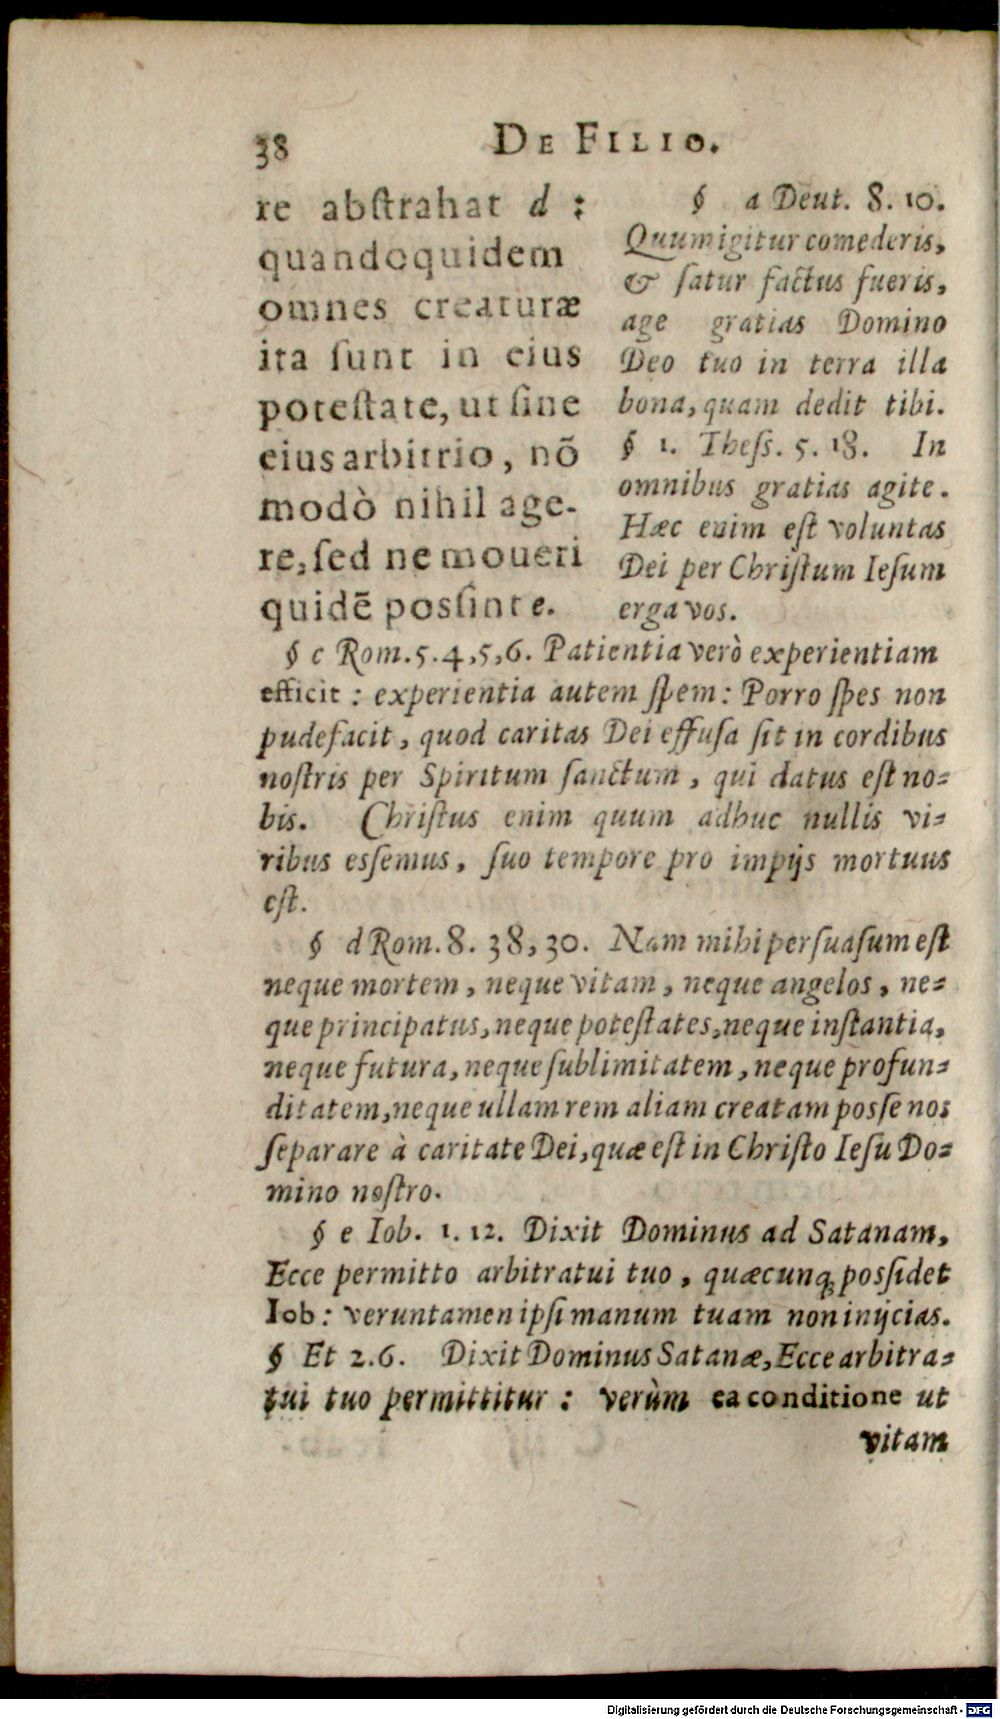 38 DE FILIO.
re abſtrahat d :
quandoquidem
omnes creaturæ
ita ſunt in eius
poteſtate, ut ſine
eius arbitrio, nõ
modò nihil age-
re, ſed ne moueri
quidē possint e.
§ a Deut. 8. 10.
Quum igitur comederis,
& ſatur factus fueris,
age gratias Domino
Deo tuo in terra illa
bona, quam dedit tibi.
§ 1. Theſſ. 5. 18. In
omnibus gratias agite.
Hæc enim eſt voluntas
Dei per Chriſtum Ieſum
erga vos.
§ c Rom. 5. 4, 5, 6. Patientia verò experientiam
efficit : experientia autem ſpem : Porro ſpes non
pudefacit, quod caritas Dei effuſa ſit in cordibus
noſtris per Spiritum ſanctum, qui datus eſt no-
bis. Chriſtus enim quum adhuc nullis vi-
ribus eſſemus, ſuo tempore pro impijs mortuus
eſt.
§ d Rom. 8. 38, 30. Nam mihi perſuaſum eſt
neque mortem, neque vitam, neque angelos, ne-
que principatus, neque poteſtates, neque inſtantia,
neque futura, neque ſublimitatem, neque profun-
ditatem, neque ullam rem aliam creatam poſſe nos
ſeparare à caritate Dei, quæ eſt in Chriſto Ieſu Do-
mino noſtro.
§ e Iob. 1. 12. Dixit Dominus ad Satanam,
Ecce permitto arbitratui tuo, quæcunq; poſſidet
Iob : veruntamen ipſi manum tuam non inijcias.
§ Et 2. 6. Dixit Dominus Satanæ, Ecce arbitra-
tui tuo permittitur : verùm ea conditione ut
vitam
Digitalisierung gefördert durch die Deutsche Forschungsgemeinschaft - DFG